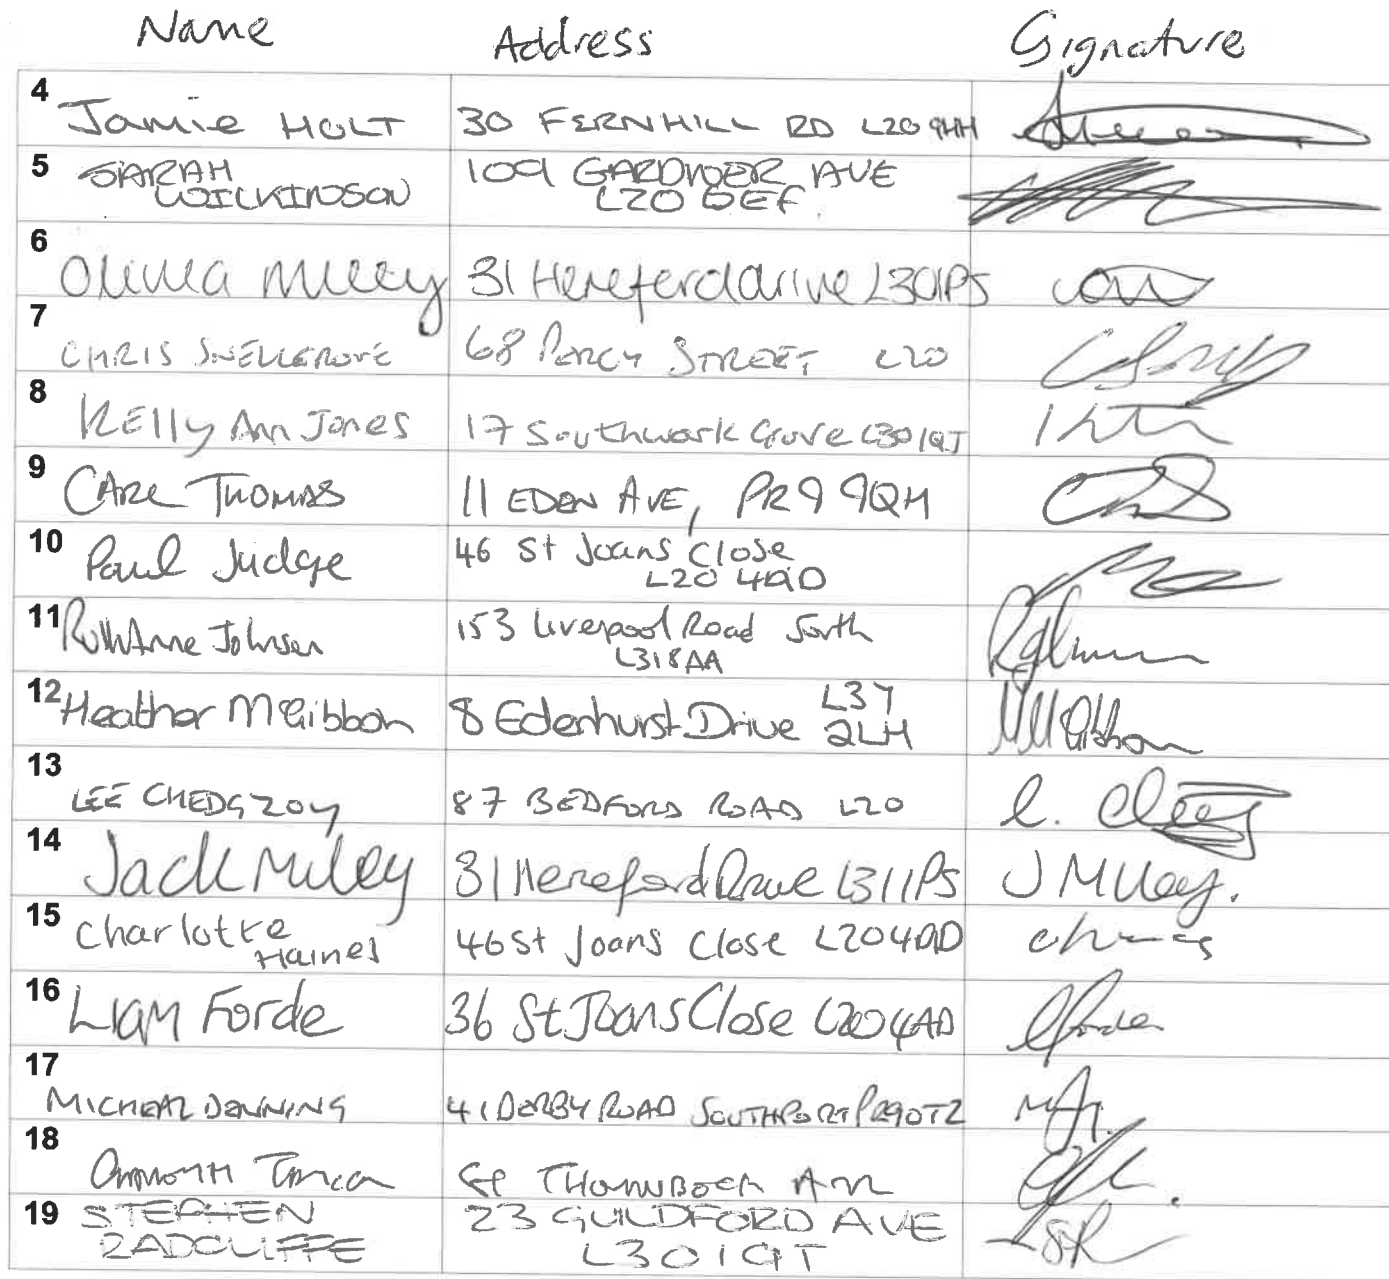 Name Address Signature
4 Jamie HOLT 30 FERNHILL RD L20 9HH
5 SARAH 109 GARDNER AVE
WILKINSON L20 6EF
6 Olivia Miley 31 Hereford drive L30 1PS
7 CHRIS SNELLGROVE 68 PERCY STREET L20
8 KELLY Ann Jones 17 Southwark Grove L30 1QJ
9 CARL THOMAS 11 EDEN AVE, PR9 9QH
10 Paul Judge 46 St Joans Close
L20 4AD
11 RuthAnne Johnson 153 Liverpool Road South
L31 8AA
12 Heather McGibbon 8 Edenhurst Drive L37
2LH
13 LEE CHEDGZOY 87 BEDFORD ROAD L20
L. 
14 Jack Miley 31 Hereford Drive L31 1PS J Miley.
15 Charlotte 46 St Joans Close L20 4AD
Haines
16 Liam Forde 36 St Joans Close L20 4AD
17 MICHEAL DOWNING 41 DERBY ROAD SOUTHPORT PR9 0TZ
18
19 STEPHEN 23 GUILDFORD AVE
RADCLIFFE L30 1QT